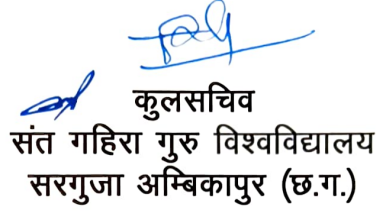 कुलसचिव
संत गहिरा गुरु विश्वविद्यालय
सरगुजा अम्बिकापुर (छ.ग.)